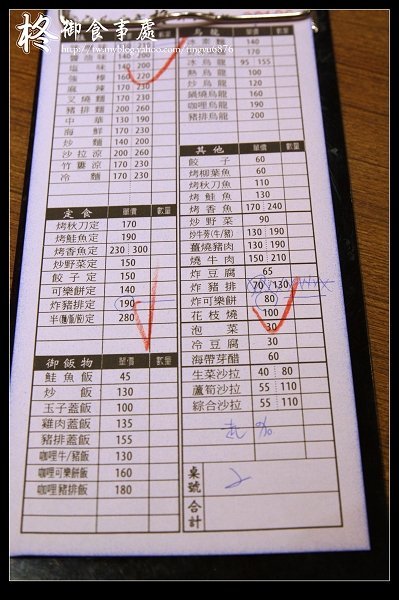 柊 御食事處
http://tw.myblog.yahoo.com/tingyu6876
醬油味 140 200
塩味 140 200
張檸 160 220
麻辣 170 230
叉燒麵 170 230
豬排麵 170 230
中華 130 190
海鮮 170 230
炒麵 140 200
沙拉涼 200 260
竹簍涼 140 200
冷麵 170 230
定食 單價 數量
烤秋刀定 170
烤鮭魚定 190
烤香魚定 230 300
炒野菜定 150
餃子定 150
可樂餅定 140
炸豬排定 190
280
御飯物 單價 數量
鮭魚飯 45
炒飯 130
玉子蓋飯 100
雞肉蓋飯 135
豬排蓋飯 155
咖哩牛/豬飯 130
咖哩可樂餅飯 160
咖哩豬排飯 180
烏龍
140
170
冰烏龍 95 155
熱烏龍 100
炒烏龍 120
鍋燒烏龍 160
咖哩烏龍 190
豬排烏龍 200
其他 單價 數量
餃子 60
烤柳葉魚 60
烤秋刀魚 110
烤鮭魚 130
烤香魚 170 240
炒野菜 90
炒牛蒡(牛/豬) 130 190
薑燒豬肉 130 190
燒牛肉 150 210
炸豆腐 65
炸豬排 70 130
炸可樂餅 80
花枝燒 100
泡菜 30
冷豆腐 30
海帶芽醋 60
生菜沙拉 40 80
蘆筍沙拉 55 110
綜合沙拉 55 110
桌號 2
合計